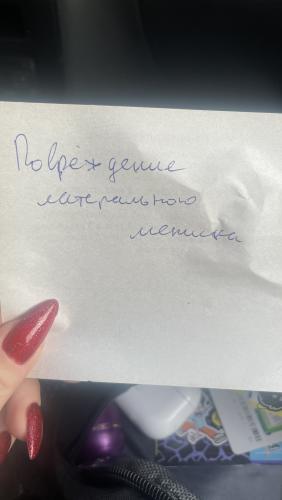 Повреждение
латерального
мениска